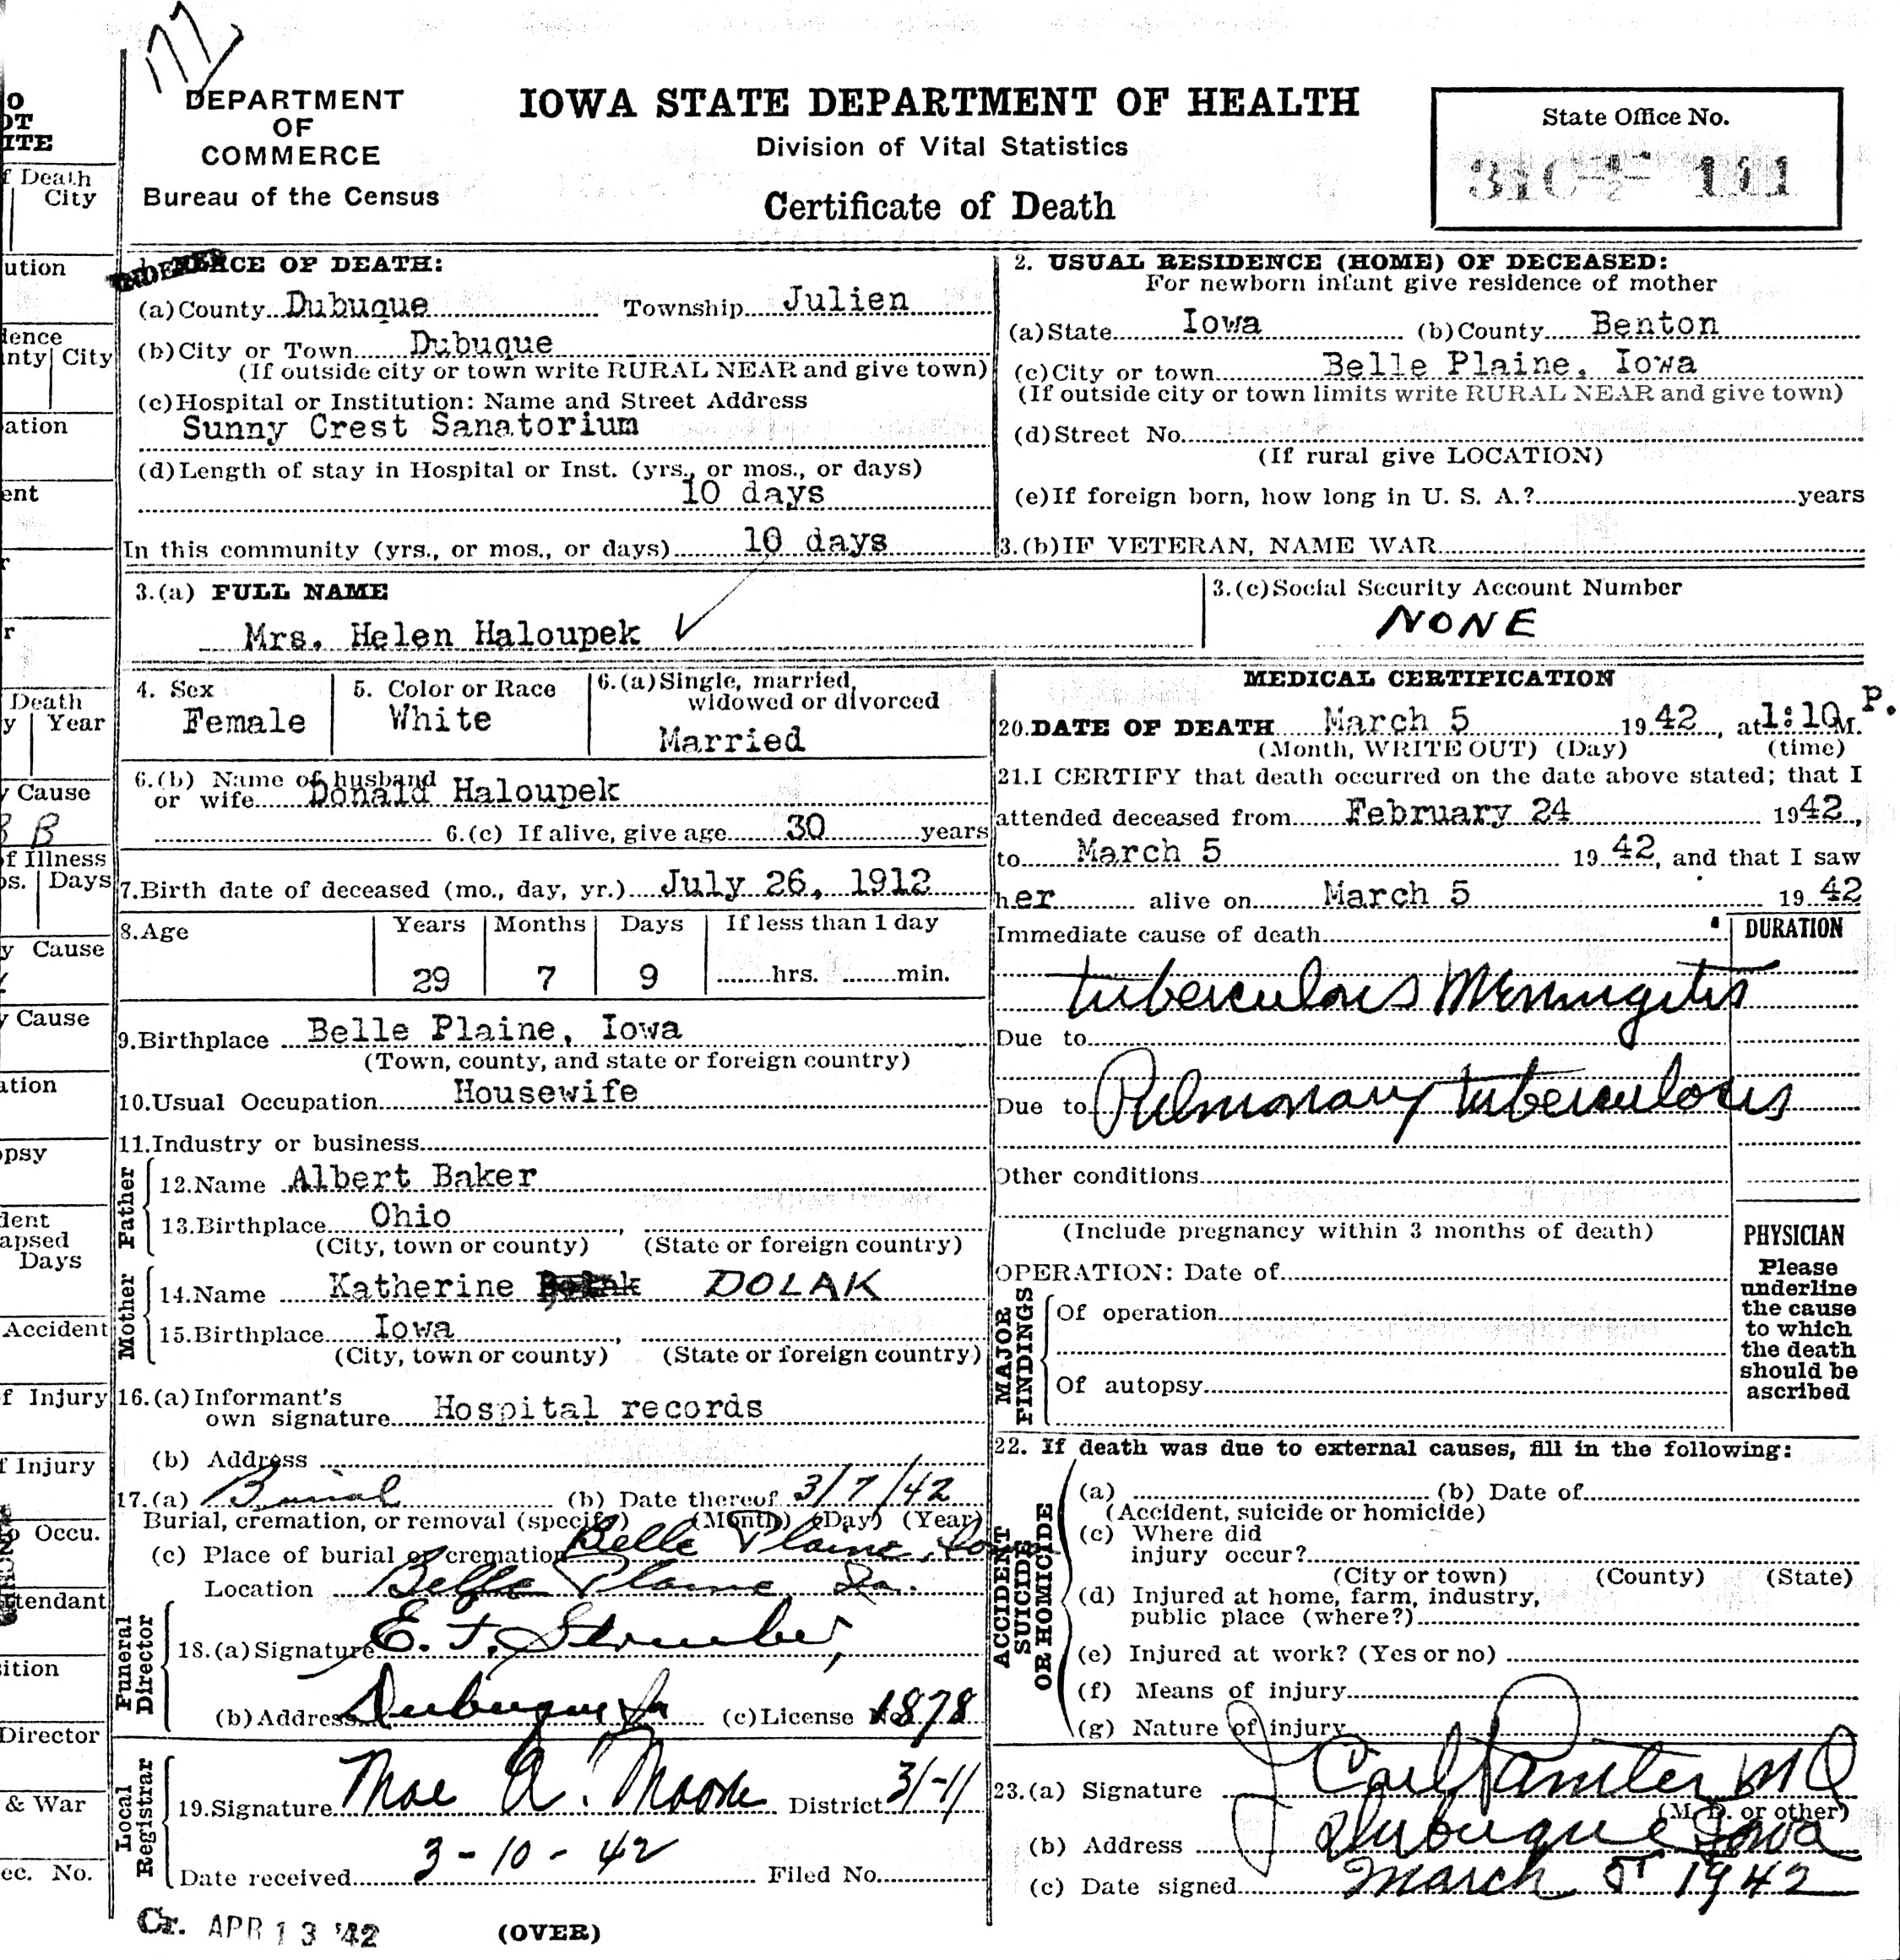 172
DEPARTMENT
OF
COMMERCE
Bureau of the Census
IOWA STATE DEPARTMENT OF HEALTH
Division of Vital Statistics
Certificate of Death
State Office No.
INDEXED
PLACE OF DEATH:
(a) County Dubuque Township Julien
(b) City or Town Dubuque
(If outside city or town write RURAL NEAR and give town)
(c) Hospital or Institution: Name and Street Address
Sunny Crest Sanatorium
(d) Length of stay in Hospital or Inst. (yrs., or mos., or days)
10 days
In this community (yrs., or mos., or days) 10 days
2. USUAL RESIDENCE (HOME) OF DECEASED:
For newborn infant give residence of mother
(a) State Iowa (b) County Benton
(c) City or town Belle Plaine, Iowa
(If outside city or town limits write RURAL NEAR and give town)
(d) Street No.
(If rural give LOCATION)
(e) If foreign born, how long in U. S. A.? years
3.(b) IF VETERAN, NAME WAR
3.(a) FULL NAME
Mrs. Helen Haloupek
3.(c) Social Security Account Number
NONE
4. Sex
Female
5. Color or Race
White
6.(a) Single, married,
widowed or divorced
Married
6.(b) Name of husband
or wife Donald Haloupek
6.(c) If alive, give age 30 years
7. Birth date of deceased (mo., day, yr.) July 26, 1912
8. Age
Years Months Days If less than 1 day
29 7 9 hrs. min.
9. Birthplace Belle Plaine, Iowa
(Town, county, and state or foreign country)
10. Usual Occupation Housewife
11. Industry or business
Father
12. Name Albert Baker
13. Birthplace Ohio,
(City, town or county) (State or foreign country)
Mother
14. Name Katherine DOLAK
15. Birthplace Iowa,
(City, town or county) (State or foreign country)
16.(a) Informant's
own signature Hospital records
(b) Address
17.(a) Burial (b) Date thereof 3/7/42
Burial, cremation, or removal (specify) (Month) (Day) (Year)
(c) Place of burial or cremation Belle Plaine, Iowa
Location Belle Plaine, Ia.
Funeral
Director
18.(a) Signature E. F.
(b) Address Dubuque Ia (c) License No. 1878
Local
Registrar
19. Signature Mae A. Moore District 31-11
Date received 3-10-42 Filed No.
Cr. APR 13 '42
(OVER)
MEDICAL CERTIFICATION
20. DATE OF DEATH March 5 1942, at 1:10 P. M.
(Month, WRITE OUT) (Day) (time)
21. I CERTIFY that death occurred on the date above stated; that I
attended deceased from February 24 1942,
to March 5 1942, and that I saw
her alive on March 5 1942
Immediate cause of death
DURATION
tuberculous Meningitis
Due to
Due to Pulmonary tuberculosis
Other conditions
(Include pregnancy within 3 months of death)
PHYSICIAN
Please
underline
the cause
to which
the death
should be
ascribed
MAJOR
FINDINGS
OPERATION: Date of
Of operation
Of autopsy
22. If death was due to external causes, fill in the following:
ACCIDENT
SUICIDE
OR HOMICIDE
(a) (b) Date of
(Accident, suicide or homicide)
(c) Where did
injury occur?
(City or town) (County) (State)
(d) Injured at home, farm, industry,
public place (where?)
(e) Injured at work? (Yes or no)
(f) Means of injury
(g) Nature of injury
23.(a) Signature J Carl Painter MD
(M. D. or other)
(b) Address Dubuque Iowa
(c) Date signed March 5 1942